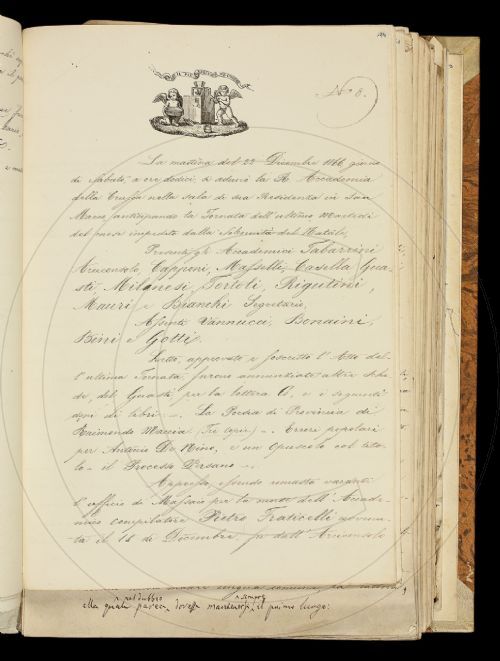 N.° 8.
La mattina del 22 Dicembre 1866 giorno
di Sabato, a ore dodici, si adunò la R. Accademia
della Crusca nella sala di sua Residenza in San
Marco, anticipando la Tornata dell'ultimo Martedì
del mese impedita dalla Solennità del Natale.
Presenti gli Accademici Tabarrini
Arciconsolo, Capponi, Maffetti, Casella, Gua-
sti, Milanesi, Tortoli, Rigutini,
Mauri e Bianchi Segretario,
Assenti Vannucci, Bonaini,
Bini e Gotti.
Letto, approvato e soscritto l'Atto del-
l'ultima Tornata, furono annunziate altre sche-
de, del Guasti per la lettera C, e i seguenti
doni di libri: La Poesia di Provincia di
Raimondo (Tre copie) -. Errori popolari
per Antonio De Nino, e un Opuscolo col tito-
lo - il Processo Persano -.
Appresso, essendo rimasto vacante
l'officio di Massaio per la morte dell'Accade-
mico compilatore Pietro Fraticelli avvenu-
ta il 18 di Dicembre, fu dall'Arciconsolo
nel dubbio e sempre
alla quale pareva dovesse mantenersi il primo luogo: